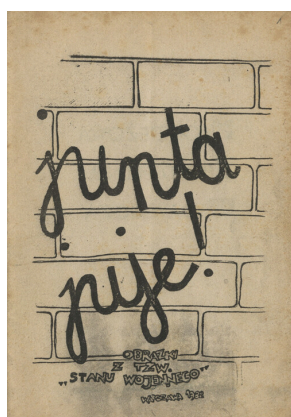 junta
pije!
OBRAZKI
Z TZW.
„STANU WOJENNEGO”
WARSZAWA 1982